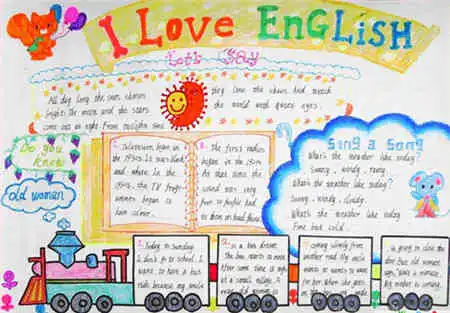 I LOVE ENGLISH
Let's Say
All day long the sun shines
bright. The moon and the stars
come out at night. From twilight time
they line the skies and watch
the world with quiet eyes.
Do you
know
old woman
1. Television began in
the 1930s. It was black
and white. In the
1950s, the TV
began to
have color.
2. The first radios
began in the 1920s.
At that time the
sound was very
poor so people had
to them on head
Sing a Song
What's the weather like today?
Sunny, windy, rainy
What's the weather like today?
Sunny, windy, cloudy
What's the weather like today
Fine but cold
Today is Sunday.
I don't go to school. I
want to have a bus
ride because my uncle
is a bus driver.
The bus wants to
After some time it
at a small village. A
old woman is
coming slowly from
another road. My uncle
wants to wait
for her. When she gets
on the bus, my uncle
is going to close the
door. But old woman
says, "wait a minute.
My mother is coming.